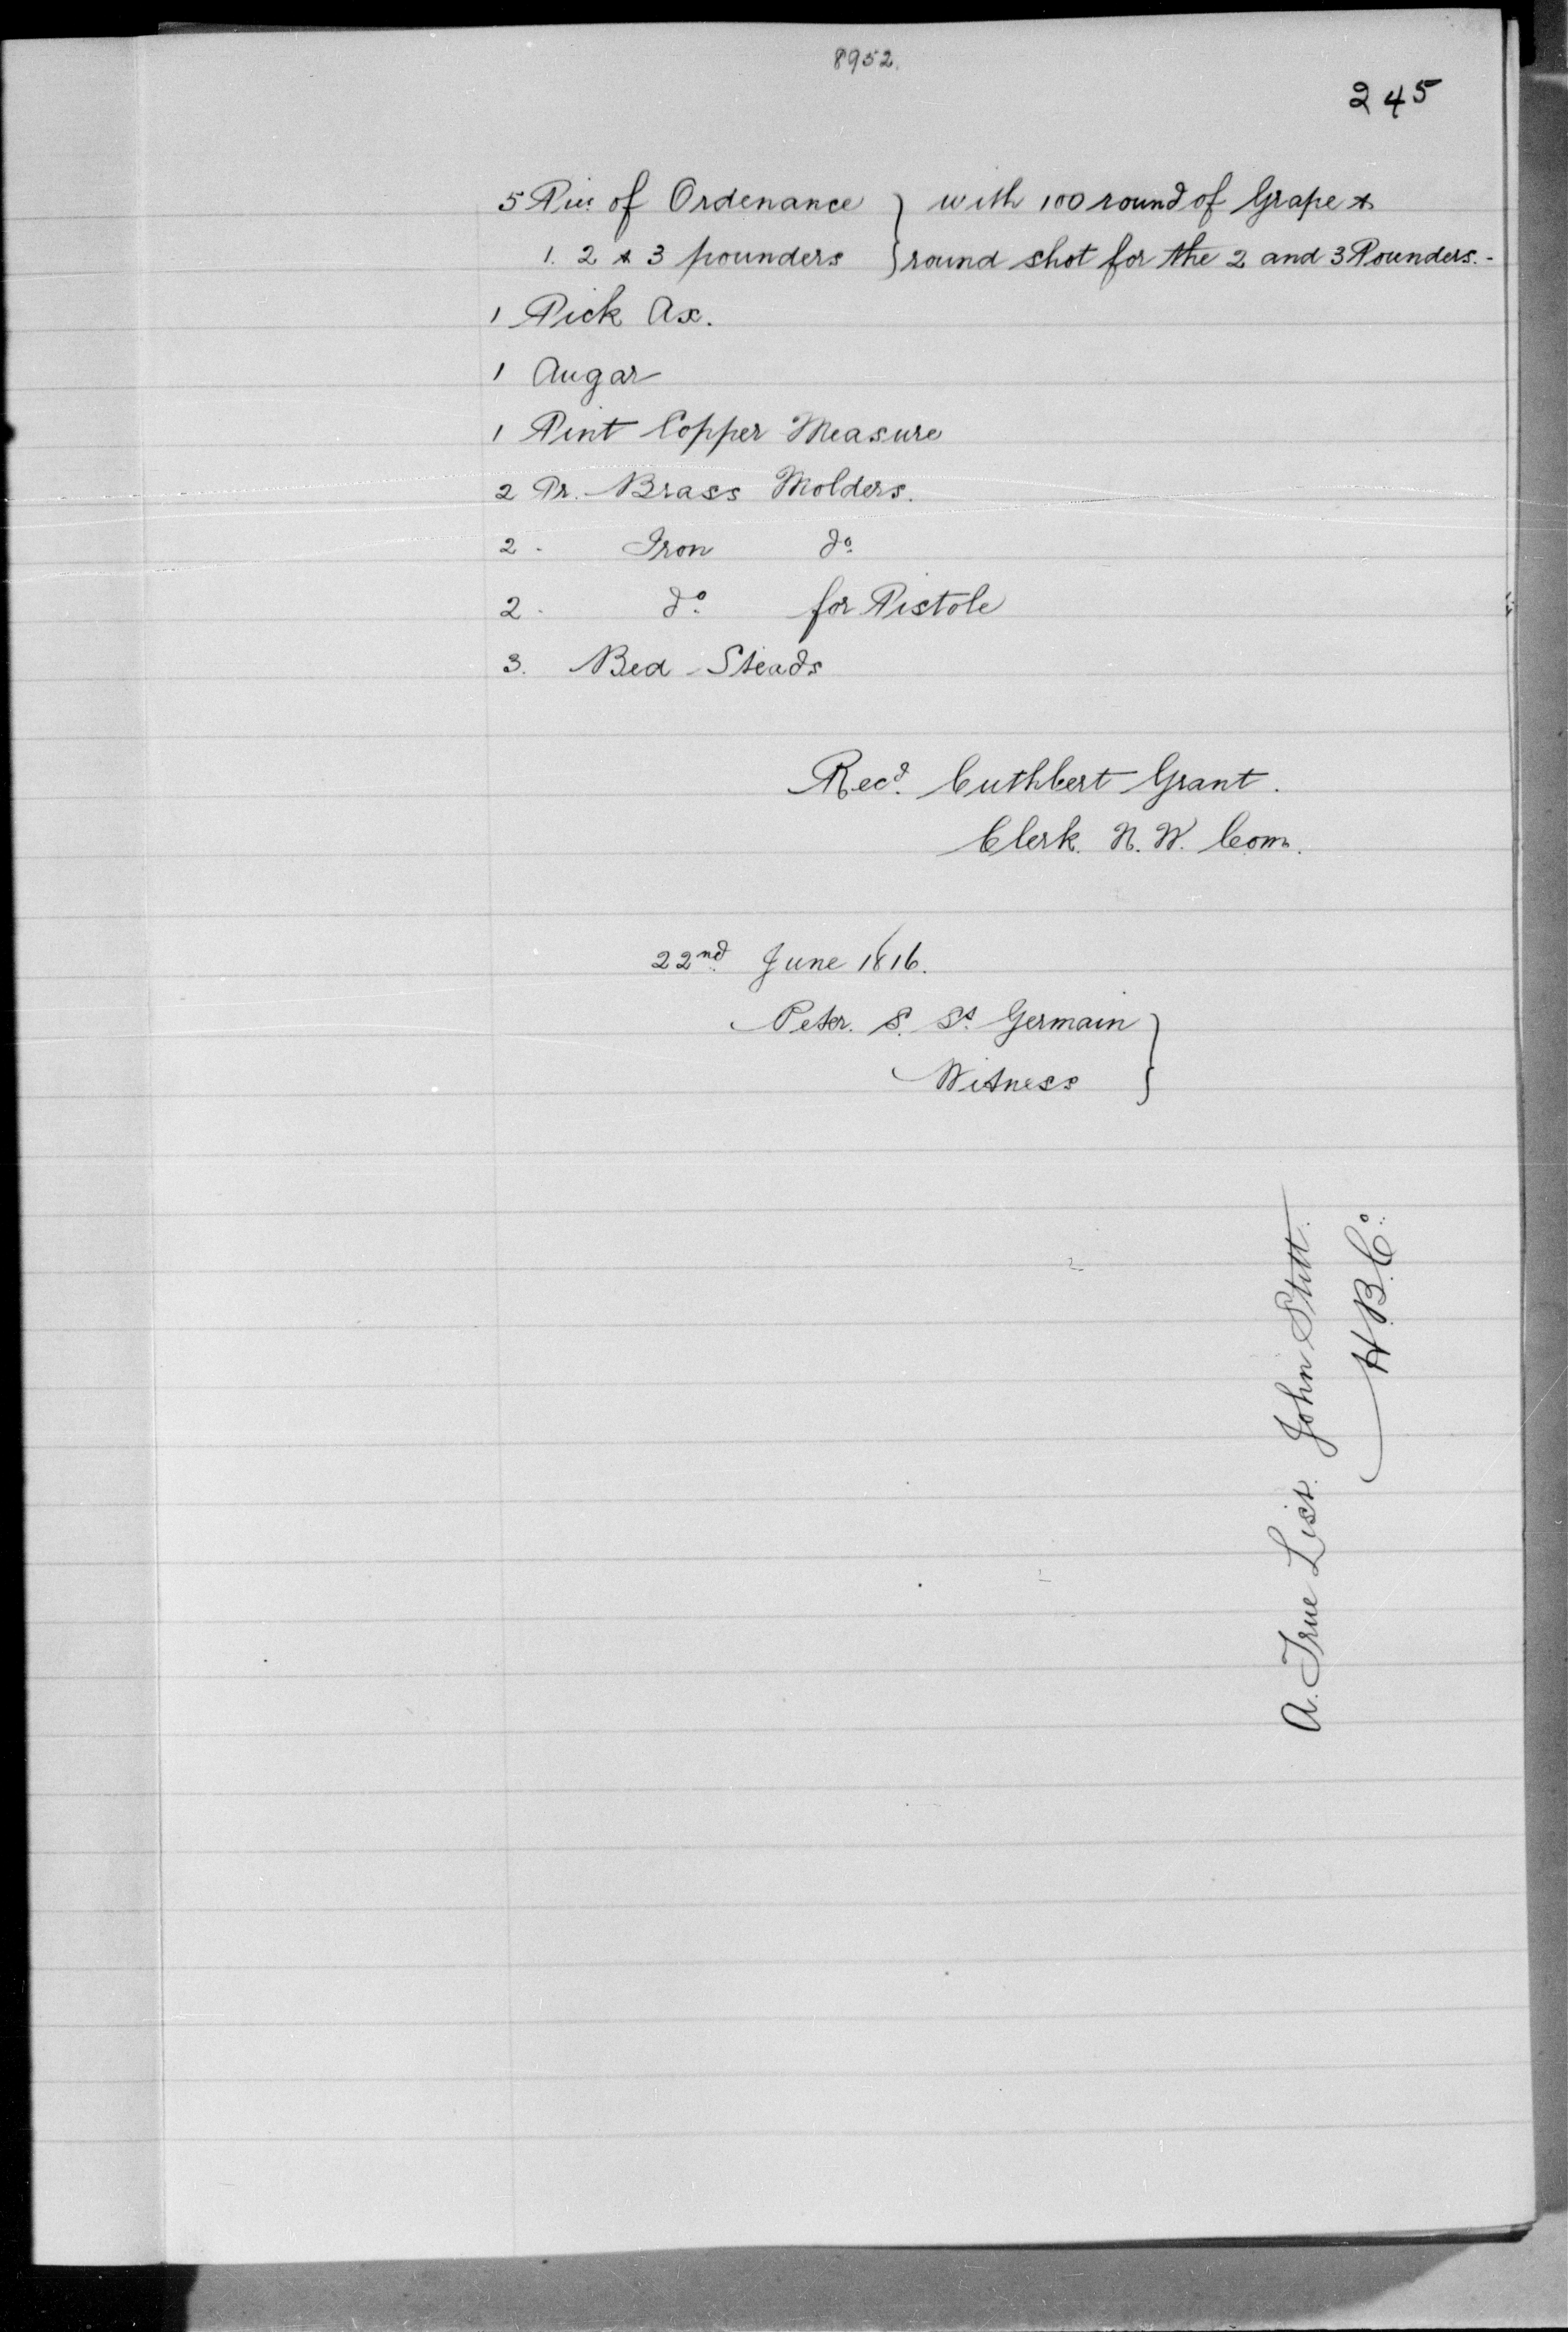 8952.
245
5 Pies of Ordenance } with 100 round of Grape &
1. 2 & 3 pounders } round shot for the 2 and 3 Pounders.-
1 Pick Ax.
1 Augar
1 Pint Copper Measure
2 Pr. Brass Molders.
2 - Iron do
2 - do for Pistole
3. Bed-Steads
Recd. Cuthbert Grant.
Clerk. N. W. Com.
22nd June 1816.
Peter. S. St. Germain }
Witness }
A. True List. John Stitt.
H.B.Co.